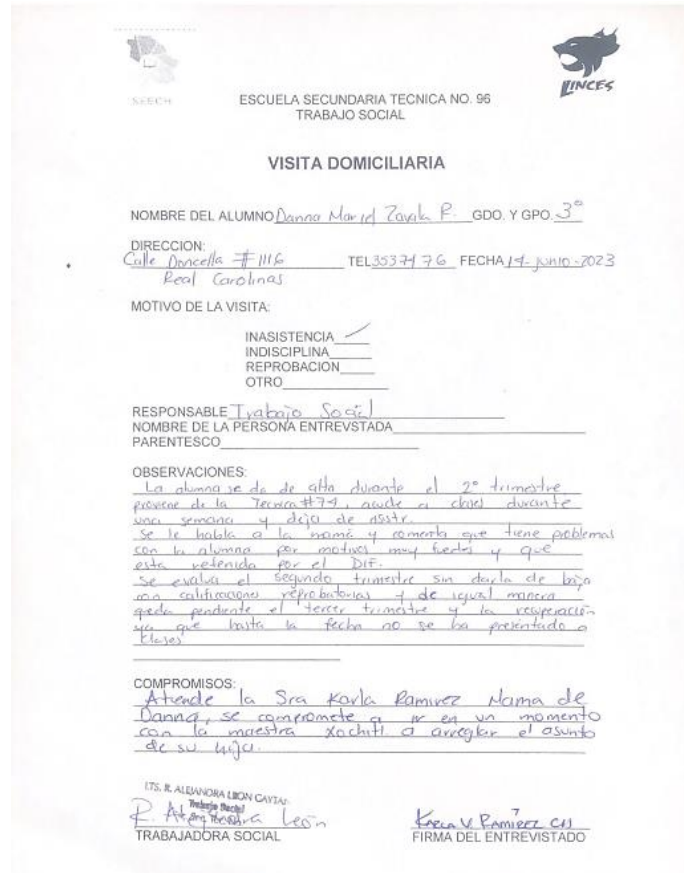 SEECH
LINCES
ESCUELA SECUNDARIA TECNICA NO. 96
TRABAJO SOCIAL
VISITA DOMICILIARIA
NOMBRE DEL ALUMNO Danna Mariel Zavala R. GDO. Y GPO. 3°
DIRECCION:
Calle Doncella # 1116 TEL 3537476 FECHA 14-junio-2023
Real Carolinas
MOTIVO DE LA VISITA:
INASISTENCIA
INDISCIPLINA
REPROBACION
OTRO
RESPONSABLE Trabajo Social
NOMBRE DE LA PERSONA ENTREVSTADA
PARENTESCO
OBSERVACIONES:
La alumna se da de alta durante el 2° trimestre
proviene de la Tecnica #74, acude a clases durante
una semana y deja de asstr.
Se le habla a la mamá y comenta que tiene problemas
con la alumna por motivos muy fuertes y que
esta retenida por el DIF.
Se evalua el segundo trimestre sin darla de baja
calificaciones reprobatorias y de igual manera
queda pendiente el tercer trimestre y la recuperación
ya que hasta la fecha no se ha presentado a
clases
COMPROMISOS:
Atiende la Sra Karla Ramirez Mama de
Danna, se compromete a ir en un momento
con la maestra Xochitl a arreglar el asunto
de su hija.
LTS. R. ALEJANDRA LEON
Trabajo Social
R. Alejandra León
TRABAJADORA SOCIAL
KARLA V. RAMIREZ
FIRMA DEL ENTREVISTADO